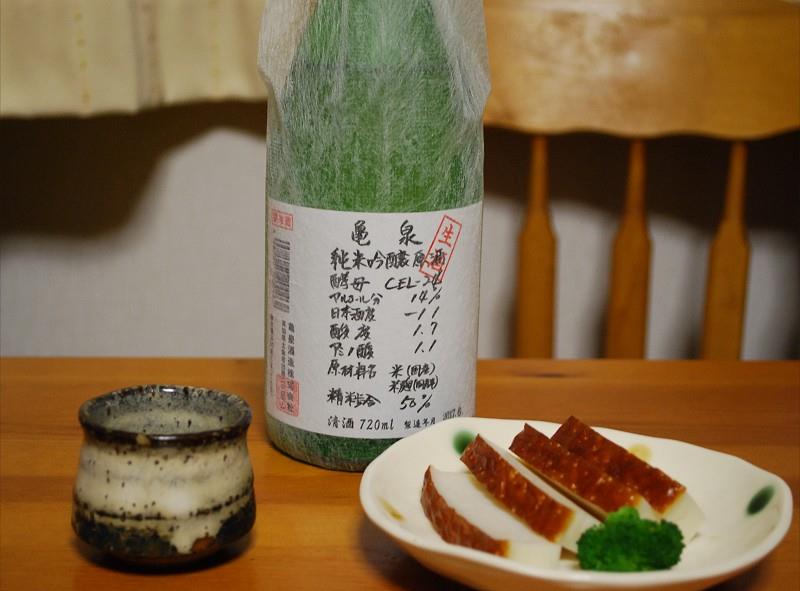 亀泉
生酒
純米吟醸原酒
酵母 CEL-24
アルコール分 14%
日本酒度 -11
酸度 1.7
アミノ酸 1.1
原材料名 米(国産)
米麹(国産米)
精米歩合 50%
清酒 720ml 製造年月 2017.6
亀泉酒造株式会社